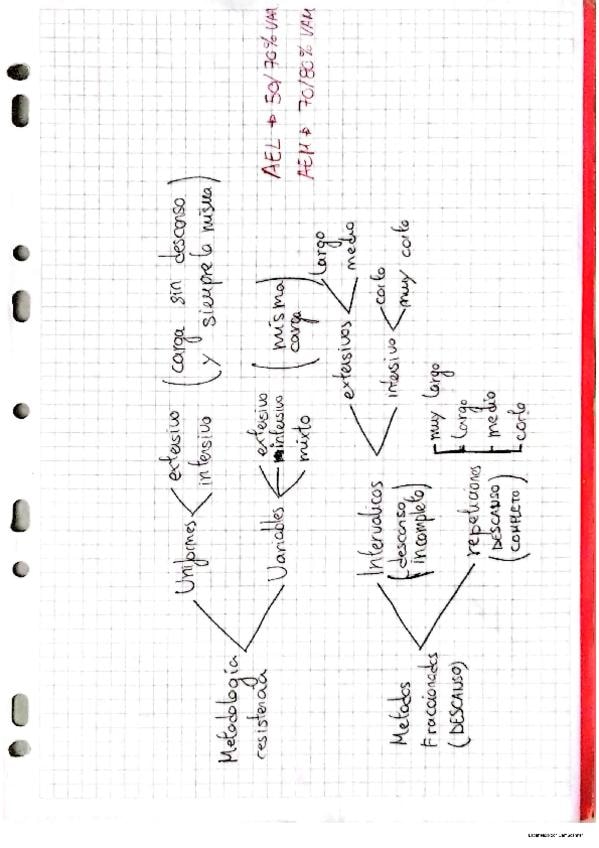 AEL → 50/70% VAM
AEM → 70/80% VAM
Metodología
resistencia
Uniformes
extensivo
intensivo
(carga sin descanso
y siempre la misma)
Variables
extensivo
intensivo
mixto
(misma
carga)
Metodos
Fraccionados
(DESCANSO)
Intervalicos
(descanso
incompleto)
extensivos
largo
medio
intensivo
corto
muy corto
repeticiones
(DESCANSO
COMPLETO)
muy largo
largo
medio
corto